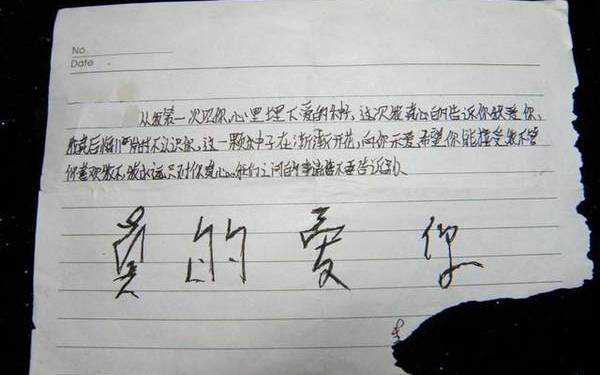 No.
Date
从我第一次识你,心里埋下爱的种,这次我真心的告诉你我爱你,
我真后悔时不认识你,这一颗种子在渐渐开花,向你示爱,希望你能接受我不管
你喜欢我不,我永远只对你真心。我们之间的事请不要告诉别人
真的爱你